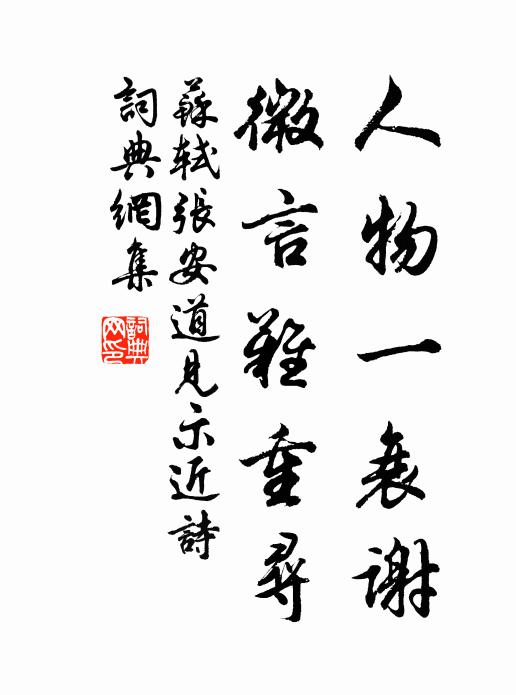 人物一衰謝
微言難重尋
蘇軾張安道見示近詩
詞典網集
詞典网印